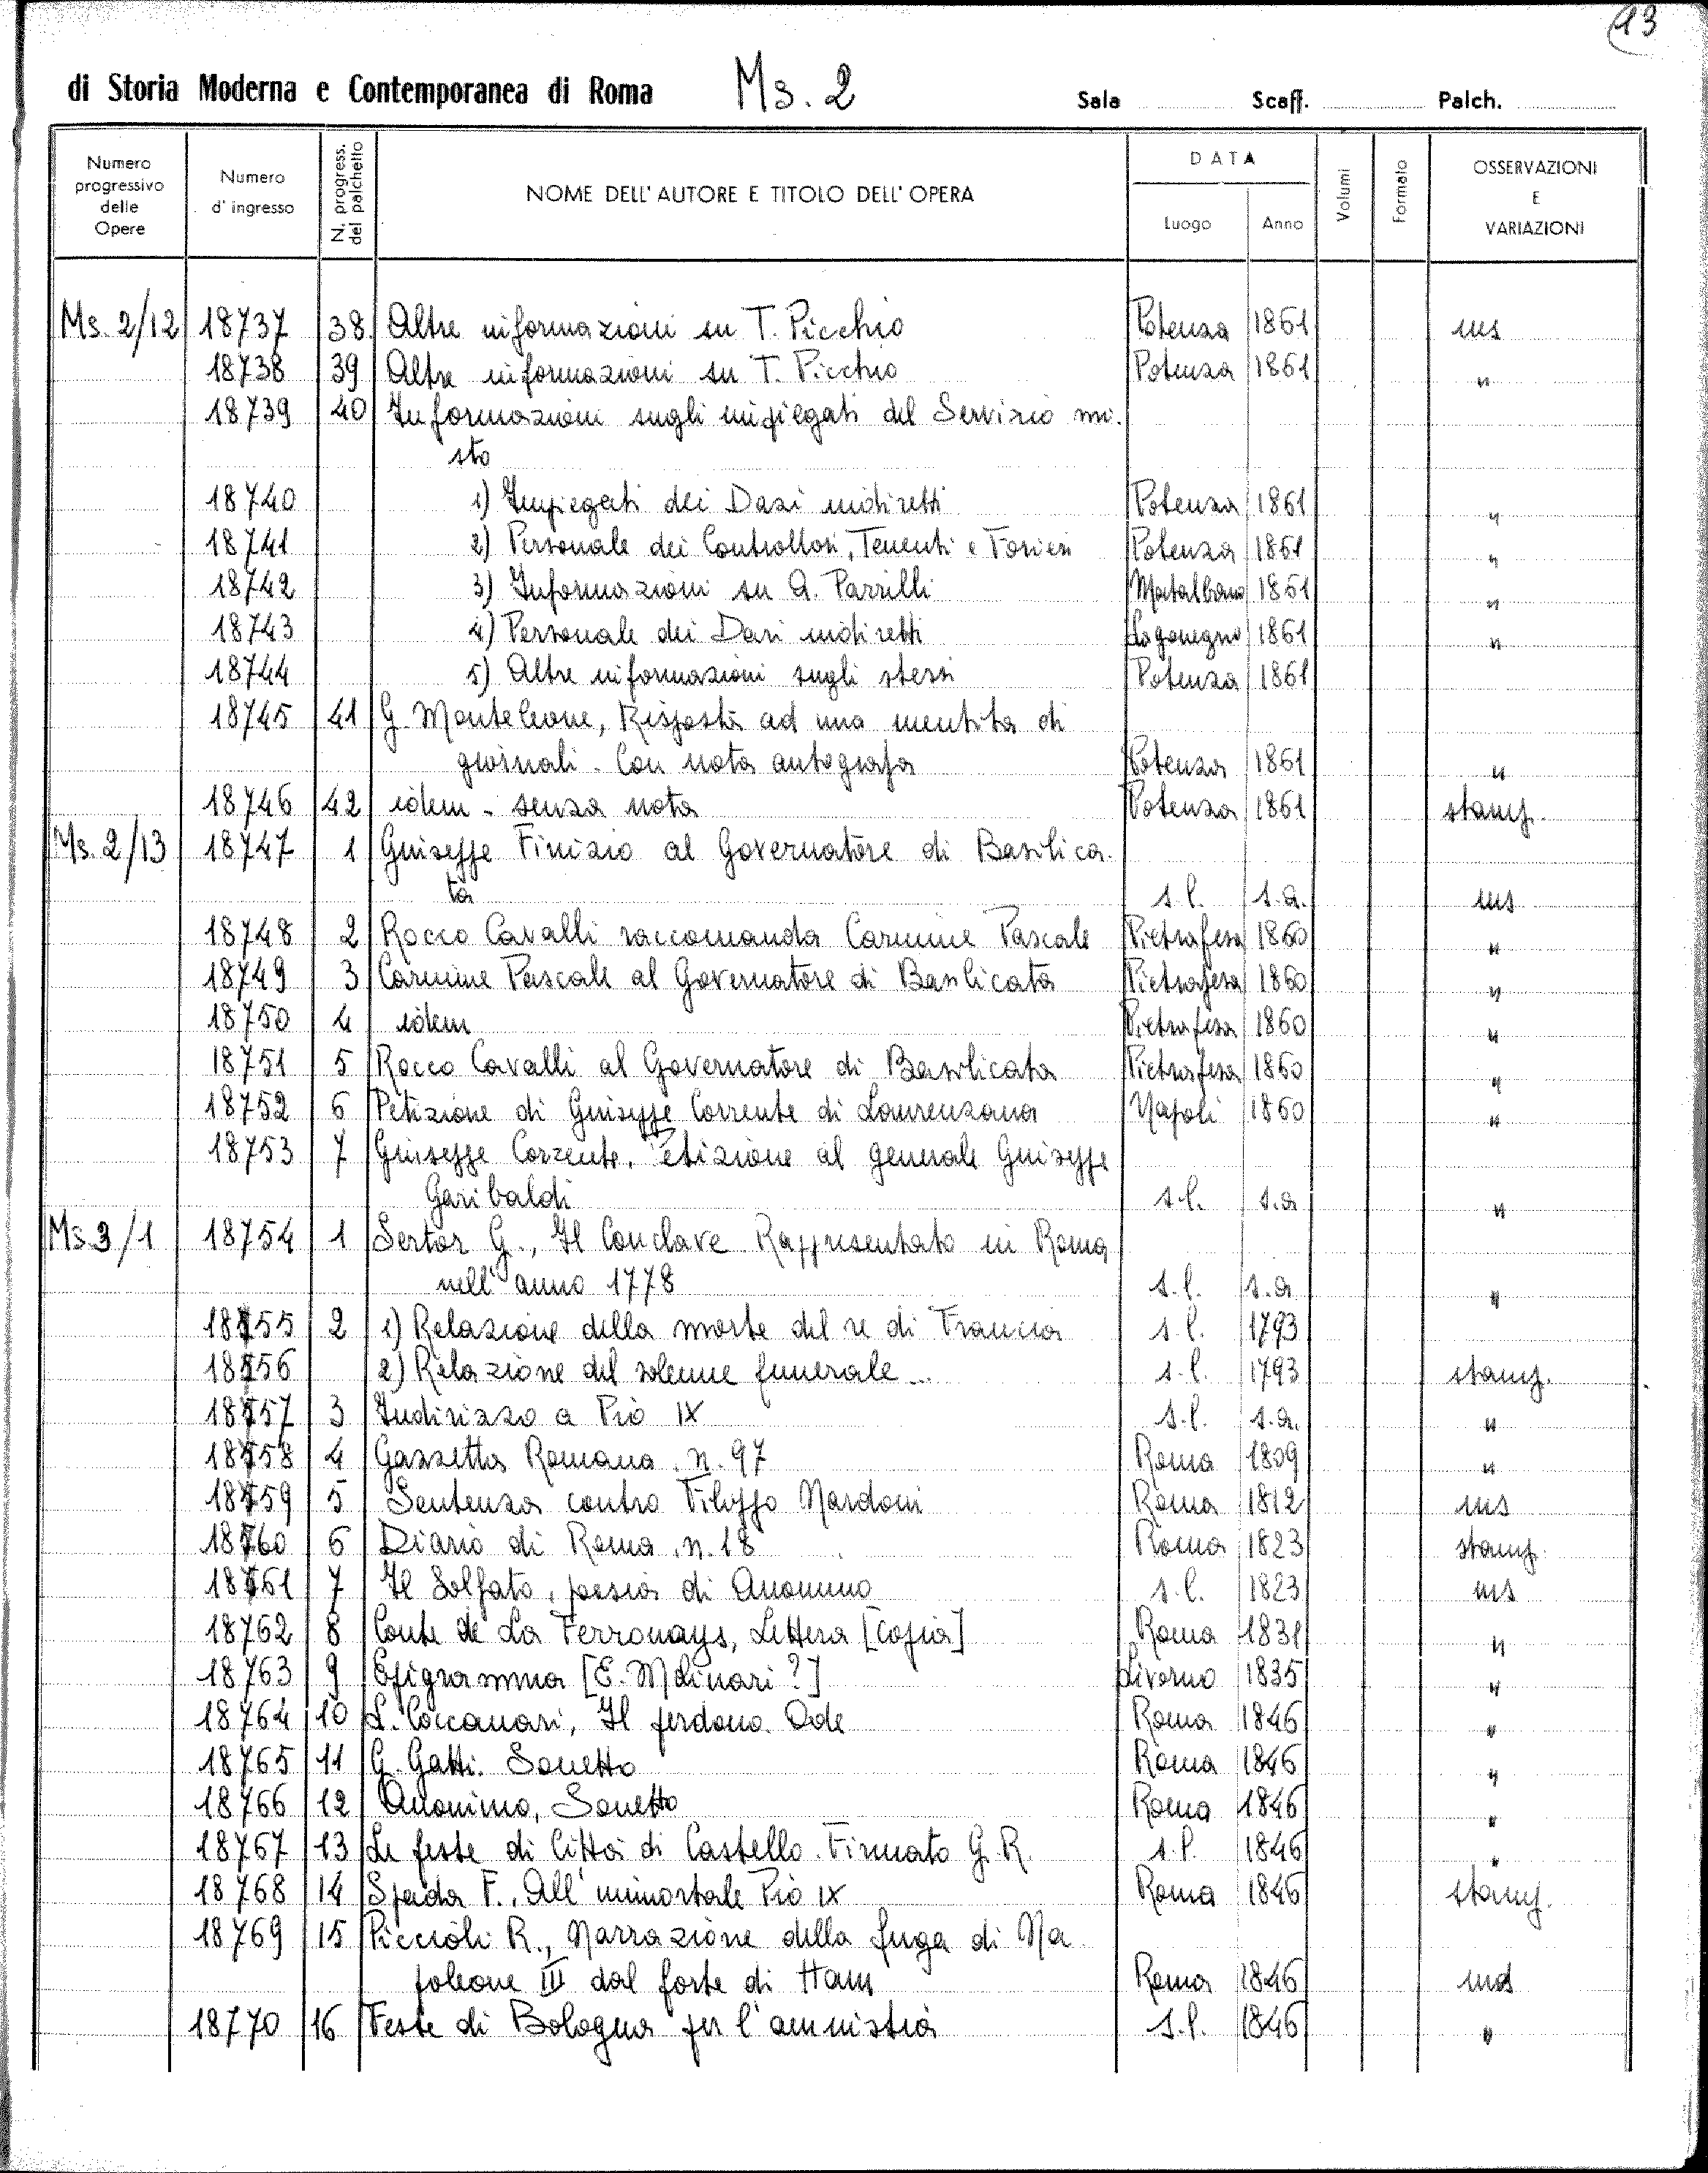 13
di Storia Moderna e Contemporanea di Roma Ms. 2 Sala Scaff. Palch.
Numero progressivo delle Opere | Numero d'ingresso | N. progress. del palchetto | NOME DELL'AUTORE E TITOLO DELL'OPERA | DATA Luogo Anno | Volumi | Formato | OSSERVAZIONI E VARIAZIONI
Ms. 2/12 18737 38 Altre informazioni su T. Picchio Potenza 1861 ms
18738 39 Altre informazioni su T. Picchio Potenza 1861 "
18739 40 Informazioni sugli impiegati del Servizio mi-
sto
18740 1) Impiegati dei Dazi indiretti Potenza 1861 "
18741 2) Personale dei Controllori, Tenenti e Forieri Potenza 1861 "
18742 3) Informazioni su A. Parrilli Matalbano 1861 "
18743 4) Personale dei Dazi indiretti Lagonegro 1861 "
18744 5) Altre informazioni sugli stessi Potenza 1861
18745 41 G. Monteleone, Risposta ad una mentita di
giornali. Con nota autografa Potenza 1861 "
18746 42 idem - senza nota Potenza 1861 stamp.
Ms. 2/13 18747 1 Giuseppe Finizio al Governatore di Basilica-
ta s.l. s.a. ms
18748 2 Rocco Cavalli raccomanda Carmine Pascale Pietrafesa 1860 "
18749 3 Carmine Pascale al Governatore di Basilicata Pietrafesa 1860 "
18750 4 idem Pietrafesa 1860 "
18751 5 Rocco Cavalli al Governatore di Basilicata Pietrafesa 1860 "
18752 6 Petizione di Giuseppe Corrente di Laurenzana Napoli 1860 "
18753 7 Giuseppe Corrente, Petizione al generale Giuseppe
Garibaldi s.l. s.a "
Ms 3/1 18754 1 Sertor G., Il Conclave Rappresentato in Roma
nell'anno 1778 s.l. s.a "
18755 2 1) Relazione della morte del re di Francia s.l. 1793
18756 2) Relazione del solenne funerale... s.l. 1793 stamp.
18757 3 Indirizzo a Pio IX s.l. s.a. "
18758 4 Gazzetta Romana, n. 97 Roma 1809 "
18759 5 Sentenza contro Filippo Nardoni Roma 1812 ms
18760 6 Diario di Roma, n. 18 Roma 1823 stamp.
18761 7 Il Solfato, poesia di Anonimo s.l. 1823 ms
18762 8 Conte de La Ferronays, Lettera [copia] Roma 1831 "
18763 9 Epigramma [E. Molinari?] Livorno 1835 "
18764 10 L. Coccanari, Il perdono. Ode Roma 1846 "
18765 11 G. Gatti. Sonetto Roma 1846 "
18766 12 Anonimo, Sonetto Roma 1846 "
18767 13 Le feste di Città di Castello. Firmato G. R. s.l. 1846 "
18768 14 Spada F., All'immortale Pio IX Roma 1846 stamp.
18769 15 Piccioli R., Narrazione della fuga di Na-
poleone III dal forte di Ham Roma 1846 ms
18770 16 Feste di Bologna per l'amnistia s.l. 1846 "